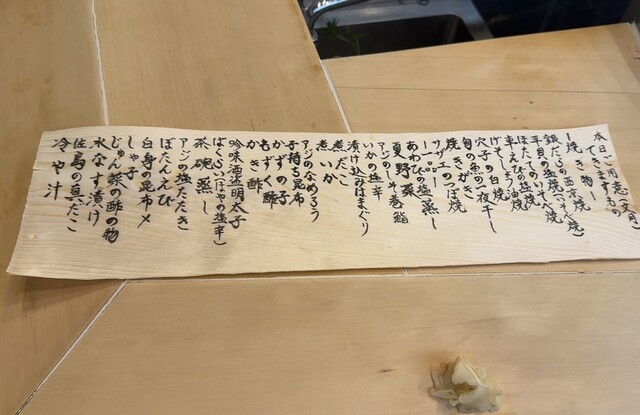 本日ご用意（文月）
できますもの
ー焼き物ー
銀だらの西京焼（つけ焼）
平貝の塩焼（いそべ焼）
ほたてのいそべ焼
車えびの塩焼
げそしょうゆ焼
穴子の白焼
旬の魚の一夜干し
焼きがき
サザエのつぼ焼
ー一品ー（塩蒸し）
あわび（塩蒸し）
夏野菜
アジのしそ巻 鮨
いかの塩辛
漬け込みはまぐり
煮だこ
煮いか
アジのなめろう
子持ち昆布
かずの子
もずく酢
かき酢
吟味酒盗明太子
ばくらい（ほやの塩辛）
茶碗蒸し
アジの塩たたき
ぼたんえび
白身の昆布〆
しゃ子
じゅん菜の酢の物
水なす漬け
佐島の真だこ
冷や汁